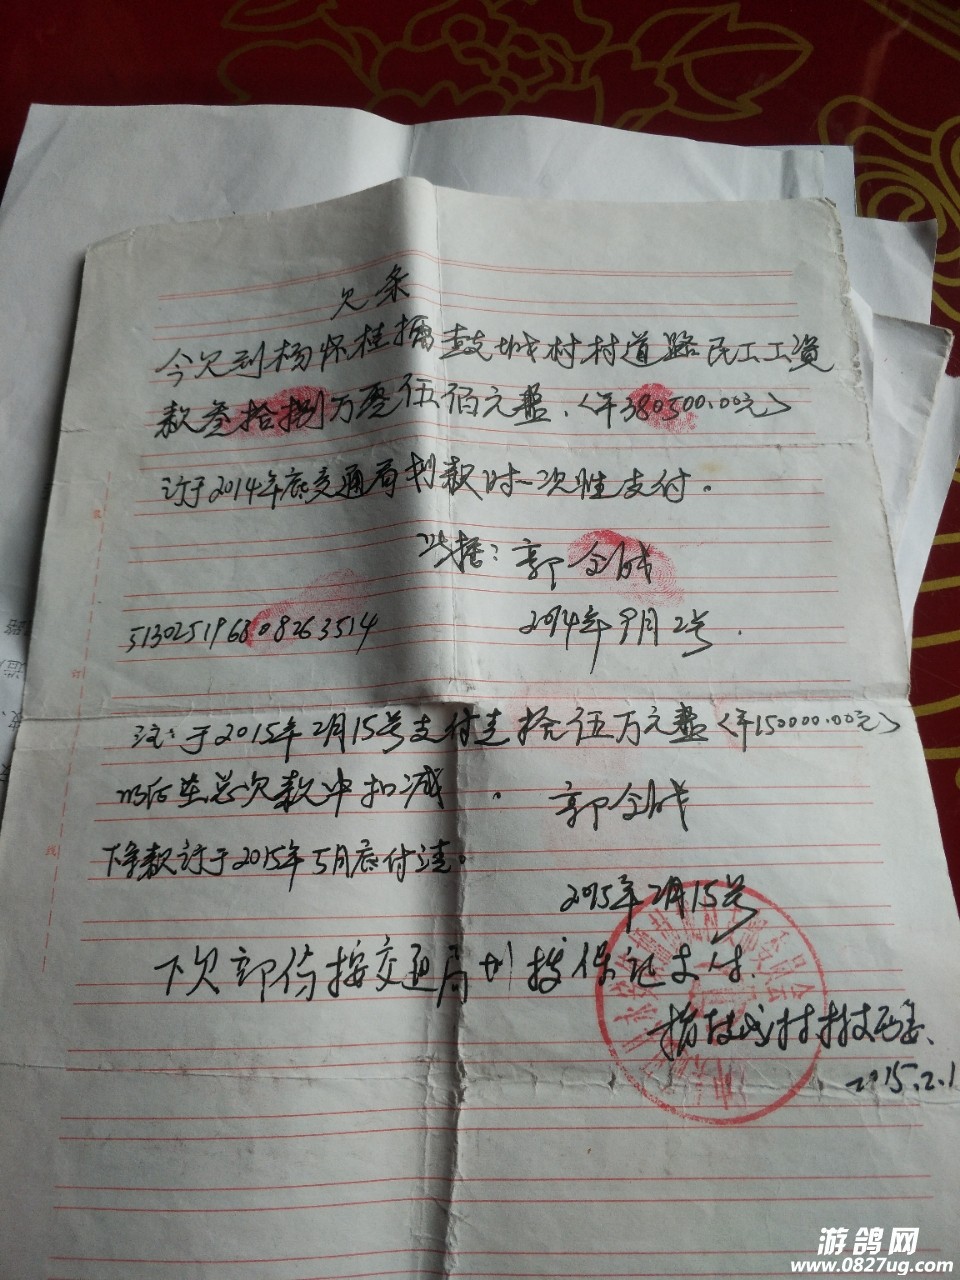 欠条
今欠到杨怀桂擂鼓城村村道路民工工资
款叁拾捌万零伍佰元整.(¥380500.00元)
订于2014年底交通局划款时一次性支付。
此据:郭全成
513025196808263514
2014年9月2号.
注:于2015年2月15号支付去拾伍万元整(¥150000.00元)
以后在总欠款中扣减.
郭全成
下余款订于2015年5月底付清。
2015年2月15号
下欠部份按交通局划拨保证支付.
擂鼓城村村
2015.2.1
游鸽网
www.0827ug.com